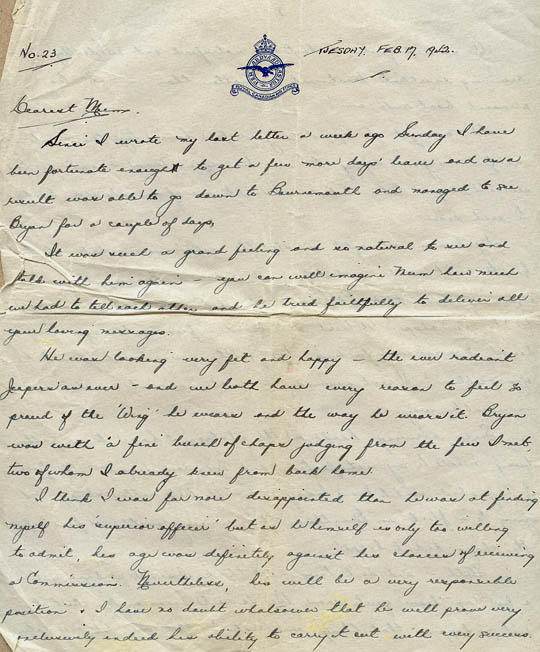 No. 23
TUESDAY. FEB. 17, 1942.
ROYAL CANADIAN AIR FORCE
Dearest Mum.
Since I wrote my last letter a week ago Sunday I have
been fortunate enough to get a few more days' leave and as a
result was able to go down to Bournemouth and managed to see
Bryan for a couple of days,
It was such a grand feeling and so natural to see and
talk with him again - you can well imagine Mum how much
we had to tell each other and he tried faithfully to deliver all
your loving messages.
He was looking very fit and happy - the ever radiant
Jeepers as ever - and we both have every reason to feel so
proud of the 'Wing' he wears and the way he wears it. Bryan
was with a fine bunch of chaps judging from the few I met,
two of whom I already knew from back home.
I think I was far more disappointed than he was at finding
myself his 'superior officer' but as he himself is only too willing
to admit, his age was definitely against his chances of receiving
a Commission. Nevertheless, his will be a very responsible
position & I have no doubt whatsoever that he will prove very
conclusively indeed his ability to carry it out with every success.